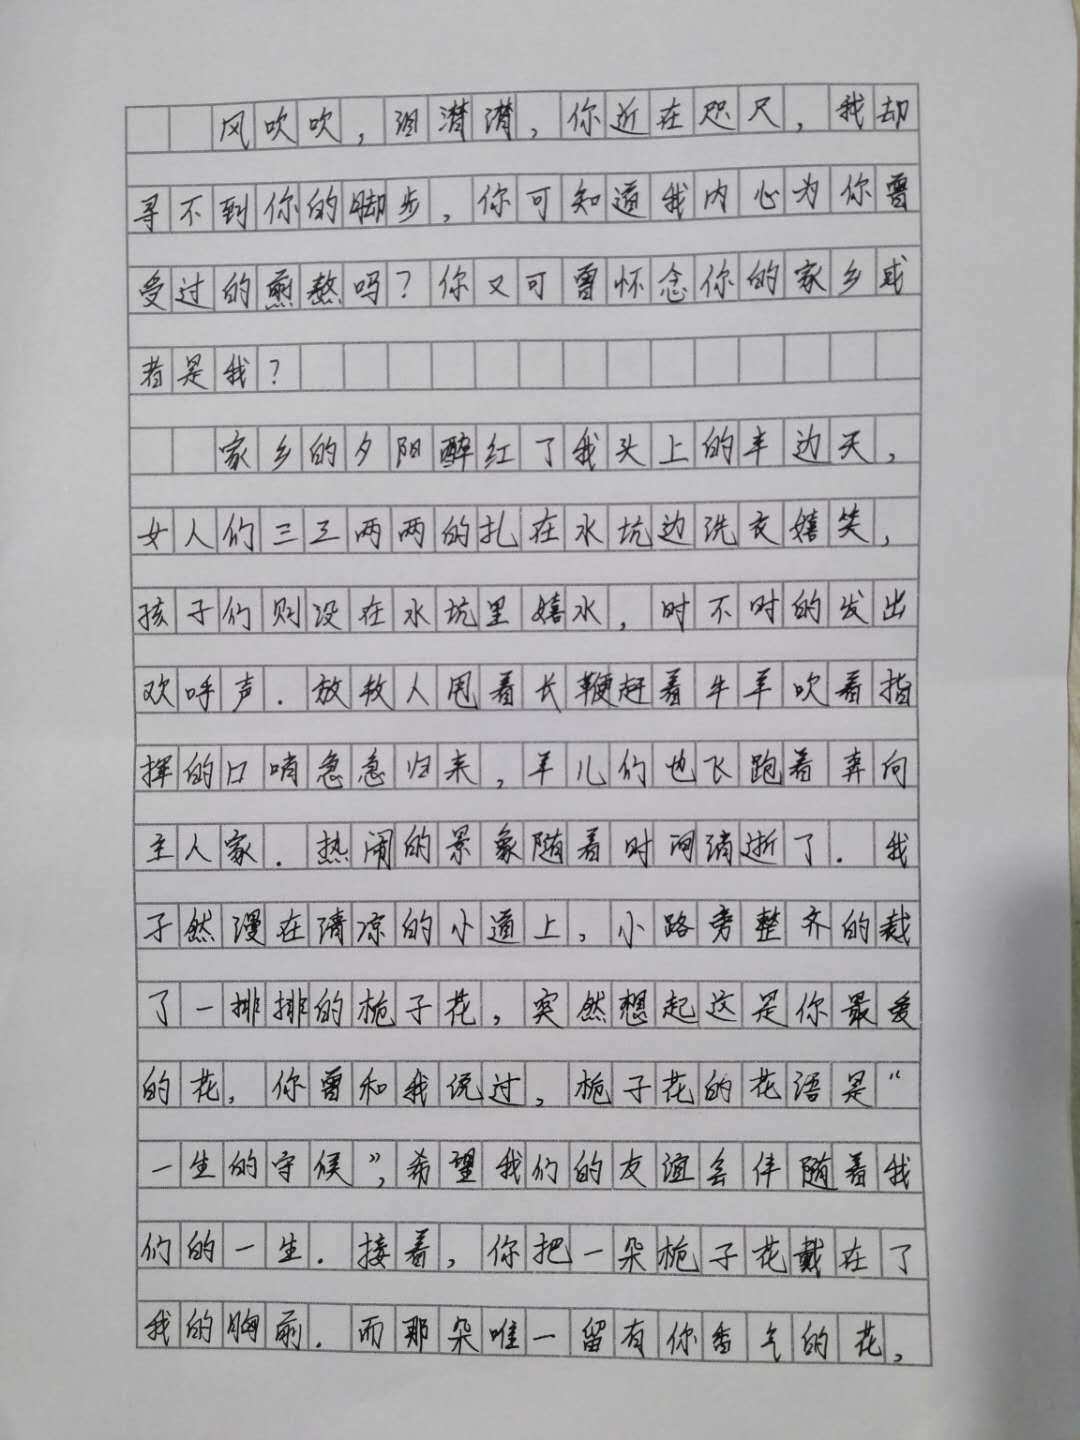 风吹吹，泪潸潸，你近在咫尺，我却
寻不到你的脚步，你可知道我内心为你曾
受过的煎熬吗？你又可曾怀念你的家乡或
者是我？
家乡的夕阳醉红了我头上的半边天，
女人们三三两两的扎在水坑边洗衣嬉笑，
孩子们则没在水坑里嬉水，时不时的发出
欢呼声．放牧人甩着长鞭赶着牛羊吹着指
挥的口哨急急归来，羊儿们也飞跑着奔向
主人家．热闹的景象随着时间消逝了．我
孑然漫在清凉的小道上，小路旁整齐的栽
了一排排的栀子花，突然想起这是你最爱
的花，你曾和我说过，栀子花的花语是“
一生的守候”，希望我们的友谊会伴随着我
们的一生．接着，你把一朵栀子花戴在了
我的胸前．而那朵唯一留有你香气的花，